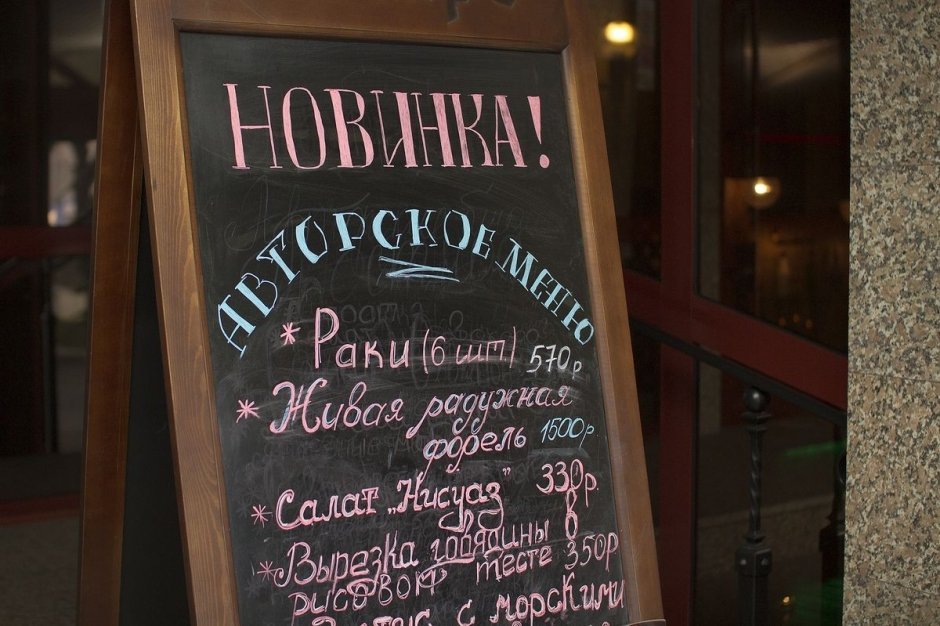 НОВИНКА!
АВТОРСКОЕ МЕНЮ
* Раки (6 шт.) 570р
* Живая радужная
форель 1500р
* Салат „Нисуаз" 330р
* Вырезка говядины в
рисовом тесте 350р
с морскими